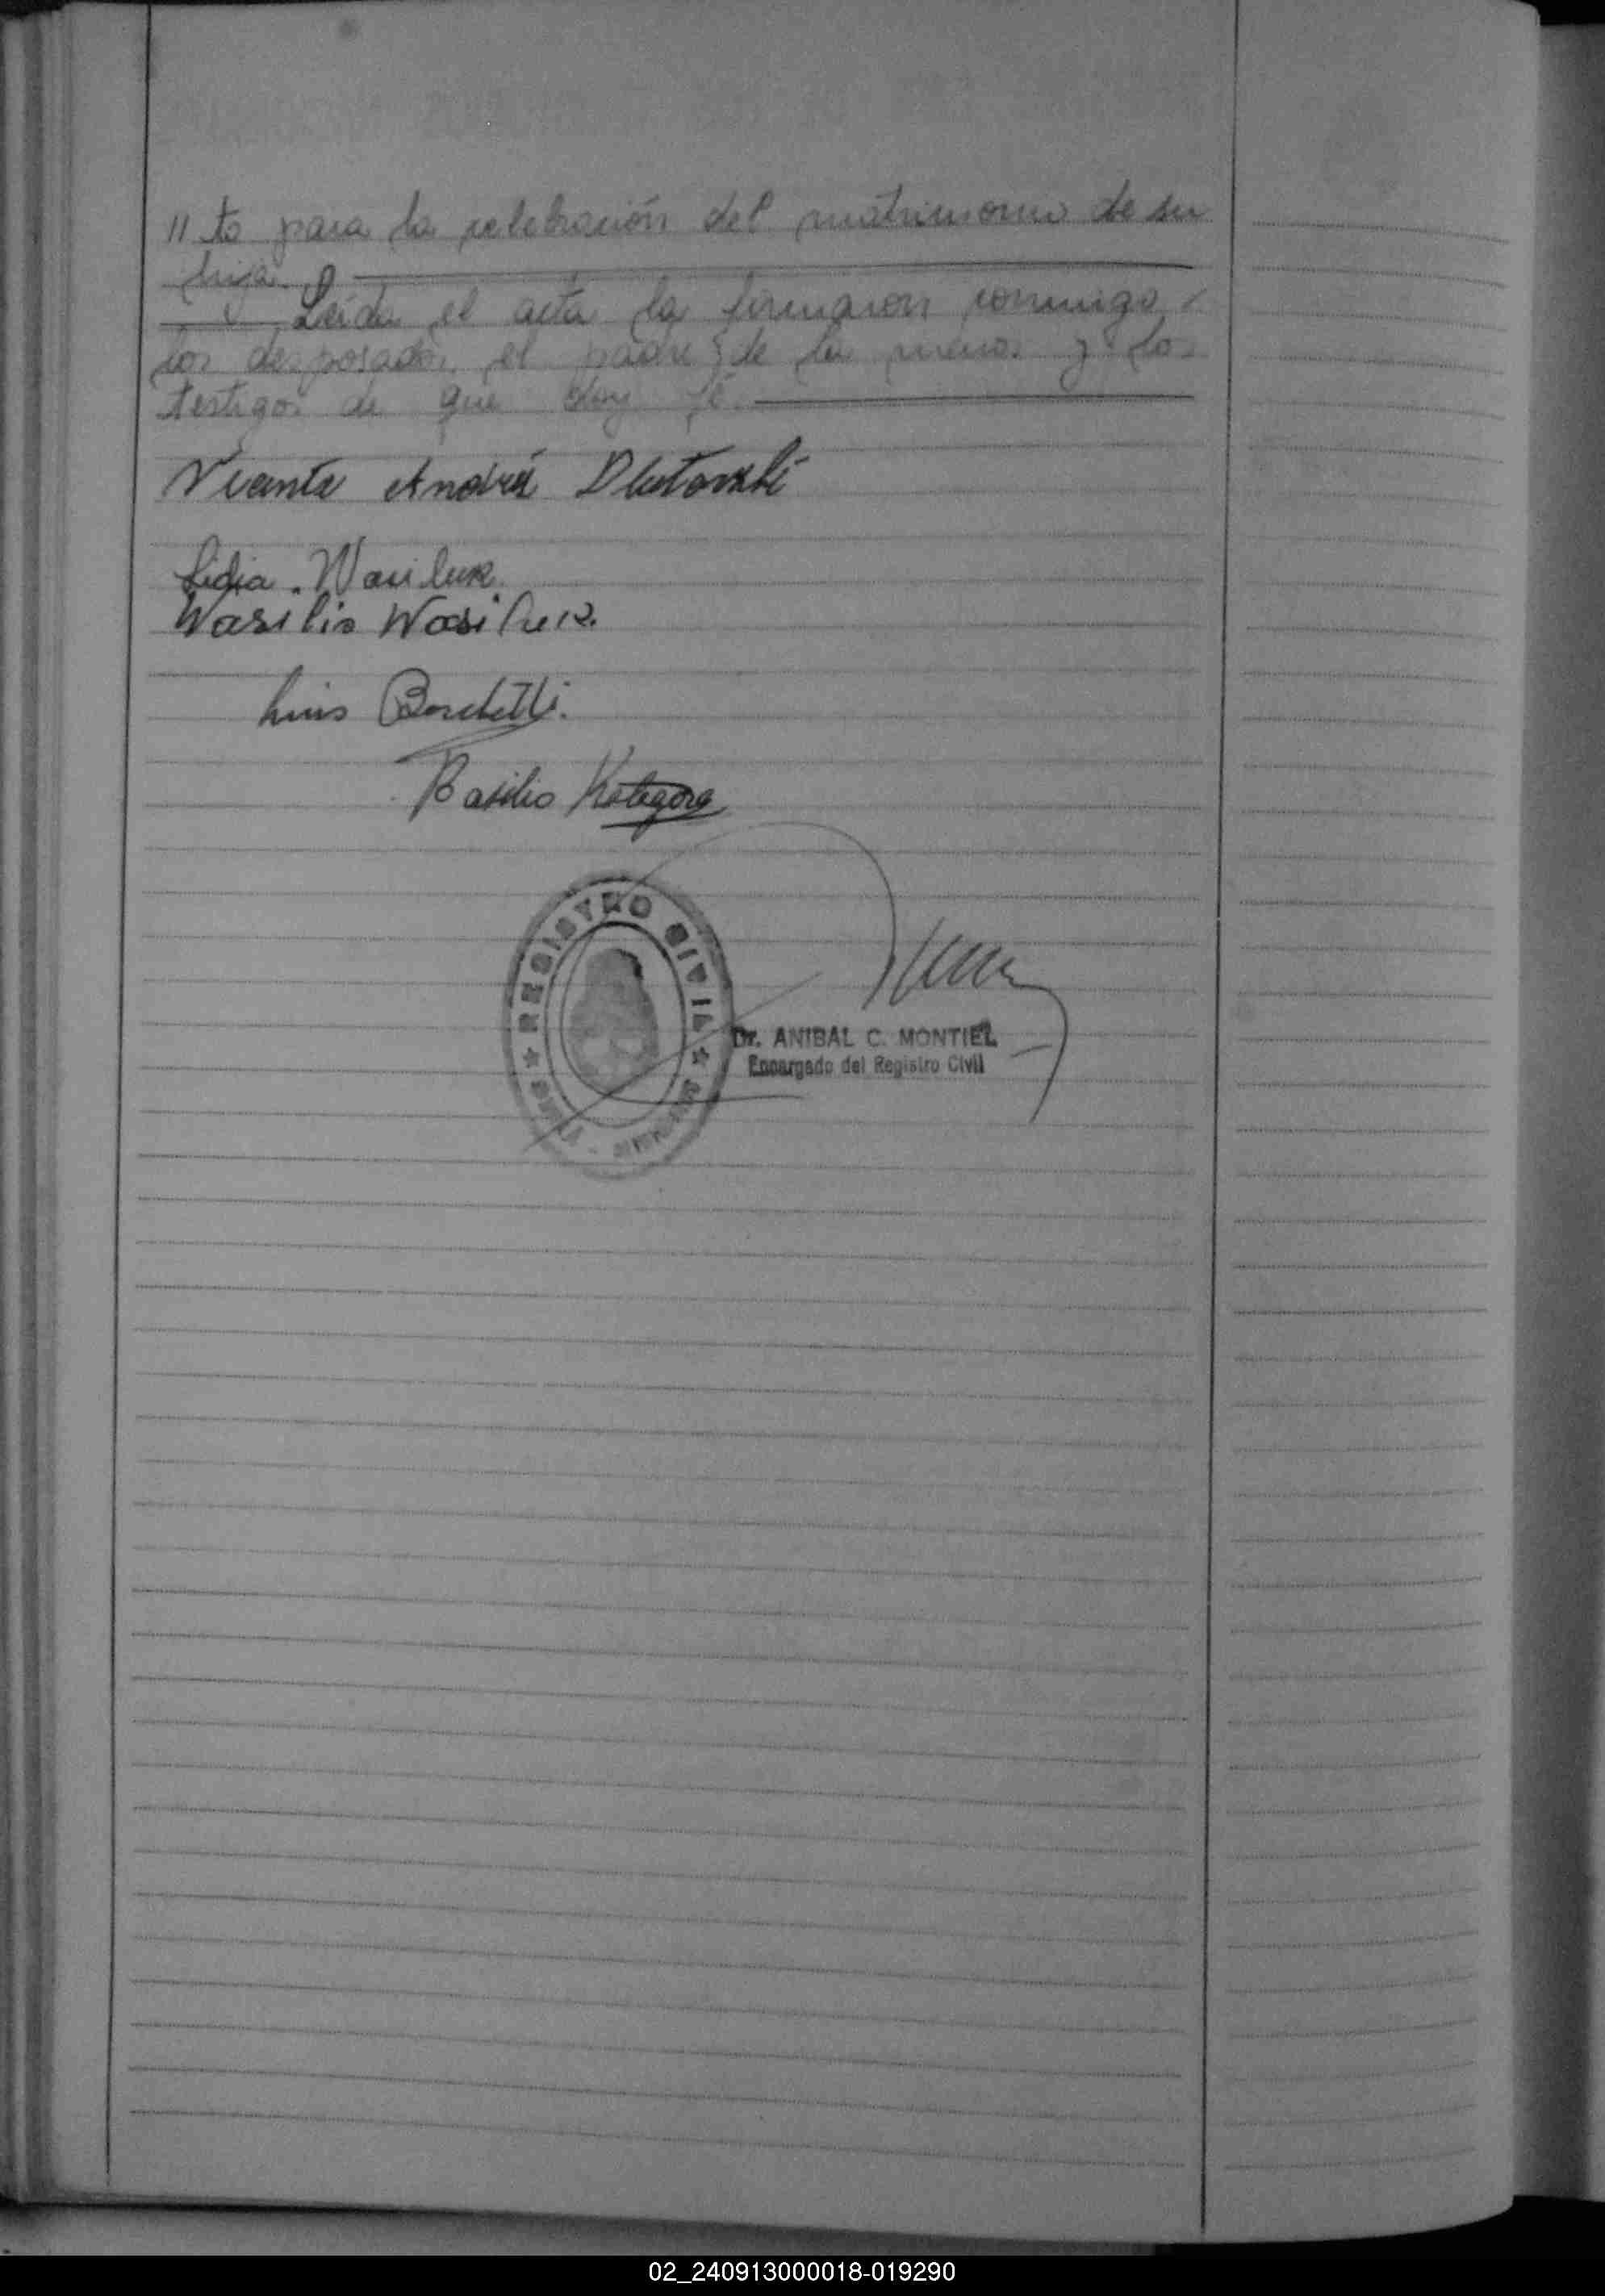 // to para la celebración del matrimonio de su
hija.
Leída el acta la firmaron conmigo
los desposados, el padre de la menor y los
testigos de que doy fé.
Vicente Andrés Dlutovski
Lidia. Wasiluk.
Wasilio Wasiluk.
Luis Boschetti.
Basilio
REGISTRO CIVIL
Dr. ANIBAL C. MONTIEL
Encargado del Registro Civil
02_240913000018-019290